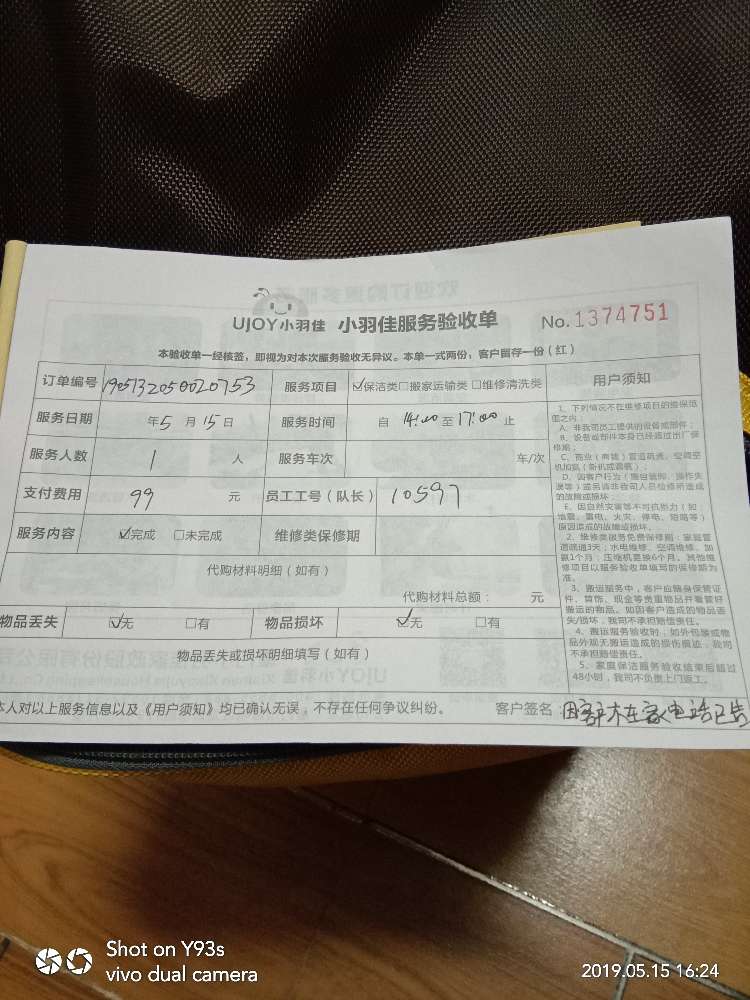 UJOY小羽佳 小羽佳服务验收单 No. 1374751
本验收单一经核签，即视为对本次服务验收无异议。本单一式两份，客户留存一份（红）
订单编号 1905132050020753 服务项目 ☑保洁类□搬家运输类□维修清洗类
服务日期 年5月15日 服务时间 自 14:00 至 17:00 止
服务人数 1 人 服务车次 车/次
支付费用 99 元 员工工号（队长） 10597
服务内容 ☑完成 □未完成 维修类保修期
代购材料明细（如有）
代购材料总额： 元
物品丢失 ☑无 □有 物品损坏 ☑无 □有
物品丢失或损坏明细填写（如有）
本人对以上服务信息以及《用户须知》均已确认无误，不存在任何争议纠纷。 客户签名 因客户不在家电话已告
用户须知
1、下列情况不在维修项目的维保范
围之内：
A、非我司员工提供的设备或部件；
B、设备或部件本身已经超过出厂保
修期；
C、商业（商铺）管道疏通、空调空
机加氟（新机或漏氟）；
E、因自然灾害等不可抗拒力（如：
地震、雷电、火灾、停电、短路等）
原因造成的故障或损坏。
2、维修类服务免费保修期：家庭管
道疏通3天；水电维修、空调维修、加
氟1个月；压缩机更换6个月。其他维
修项目以服务验收单填写的保修期为
准。
3、搬运服务中，客户应随身保管证
件、首饰、现金等贵重物品并看管好
搬运的物品。如因客户造成的物品丢
失/损坏，我司不承担赔偿责任。
4、搬运服务验收时，如外包装或物
品外观无搬运造成的损伤痕迹，我司
不承担赔偿责任。
5、家庭保洁服务验收结束后超过
48小时，我司不负责上门返工。
Shot on Y93s
vivo dual camera
2019.05.15 16:24